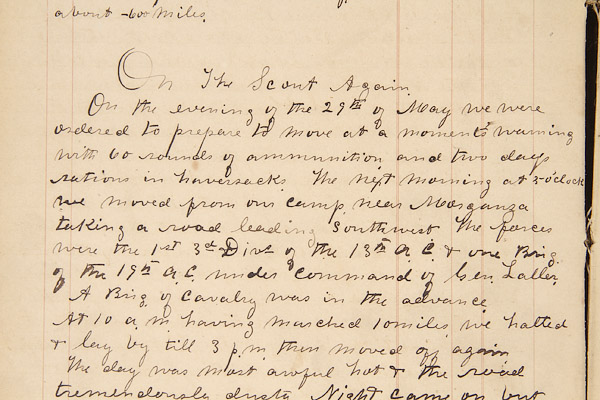 about -600 miles.
On The Scout Again
On the evening of the 29th of May we were
ordered to prepare to move at a moments warning
with 60 rounds of ammunition and two days
rations in haversacks. The next morning at 3-o'clock
we moved from our camp, near Morganza
taking a road leading Southwest. The forces
were the 1st 3rd Divs of the 13th A. C. & one Brig.
of the 19th A. C. under command of Gen. Lawler.
A Brig. of Cavalry was in the advance
At 10 a. m. having marched 10 miles, we halted
& lay by till 3 p. m. then moved off again
The day was most awful hot & the road
tremendously dusty. Night came on but